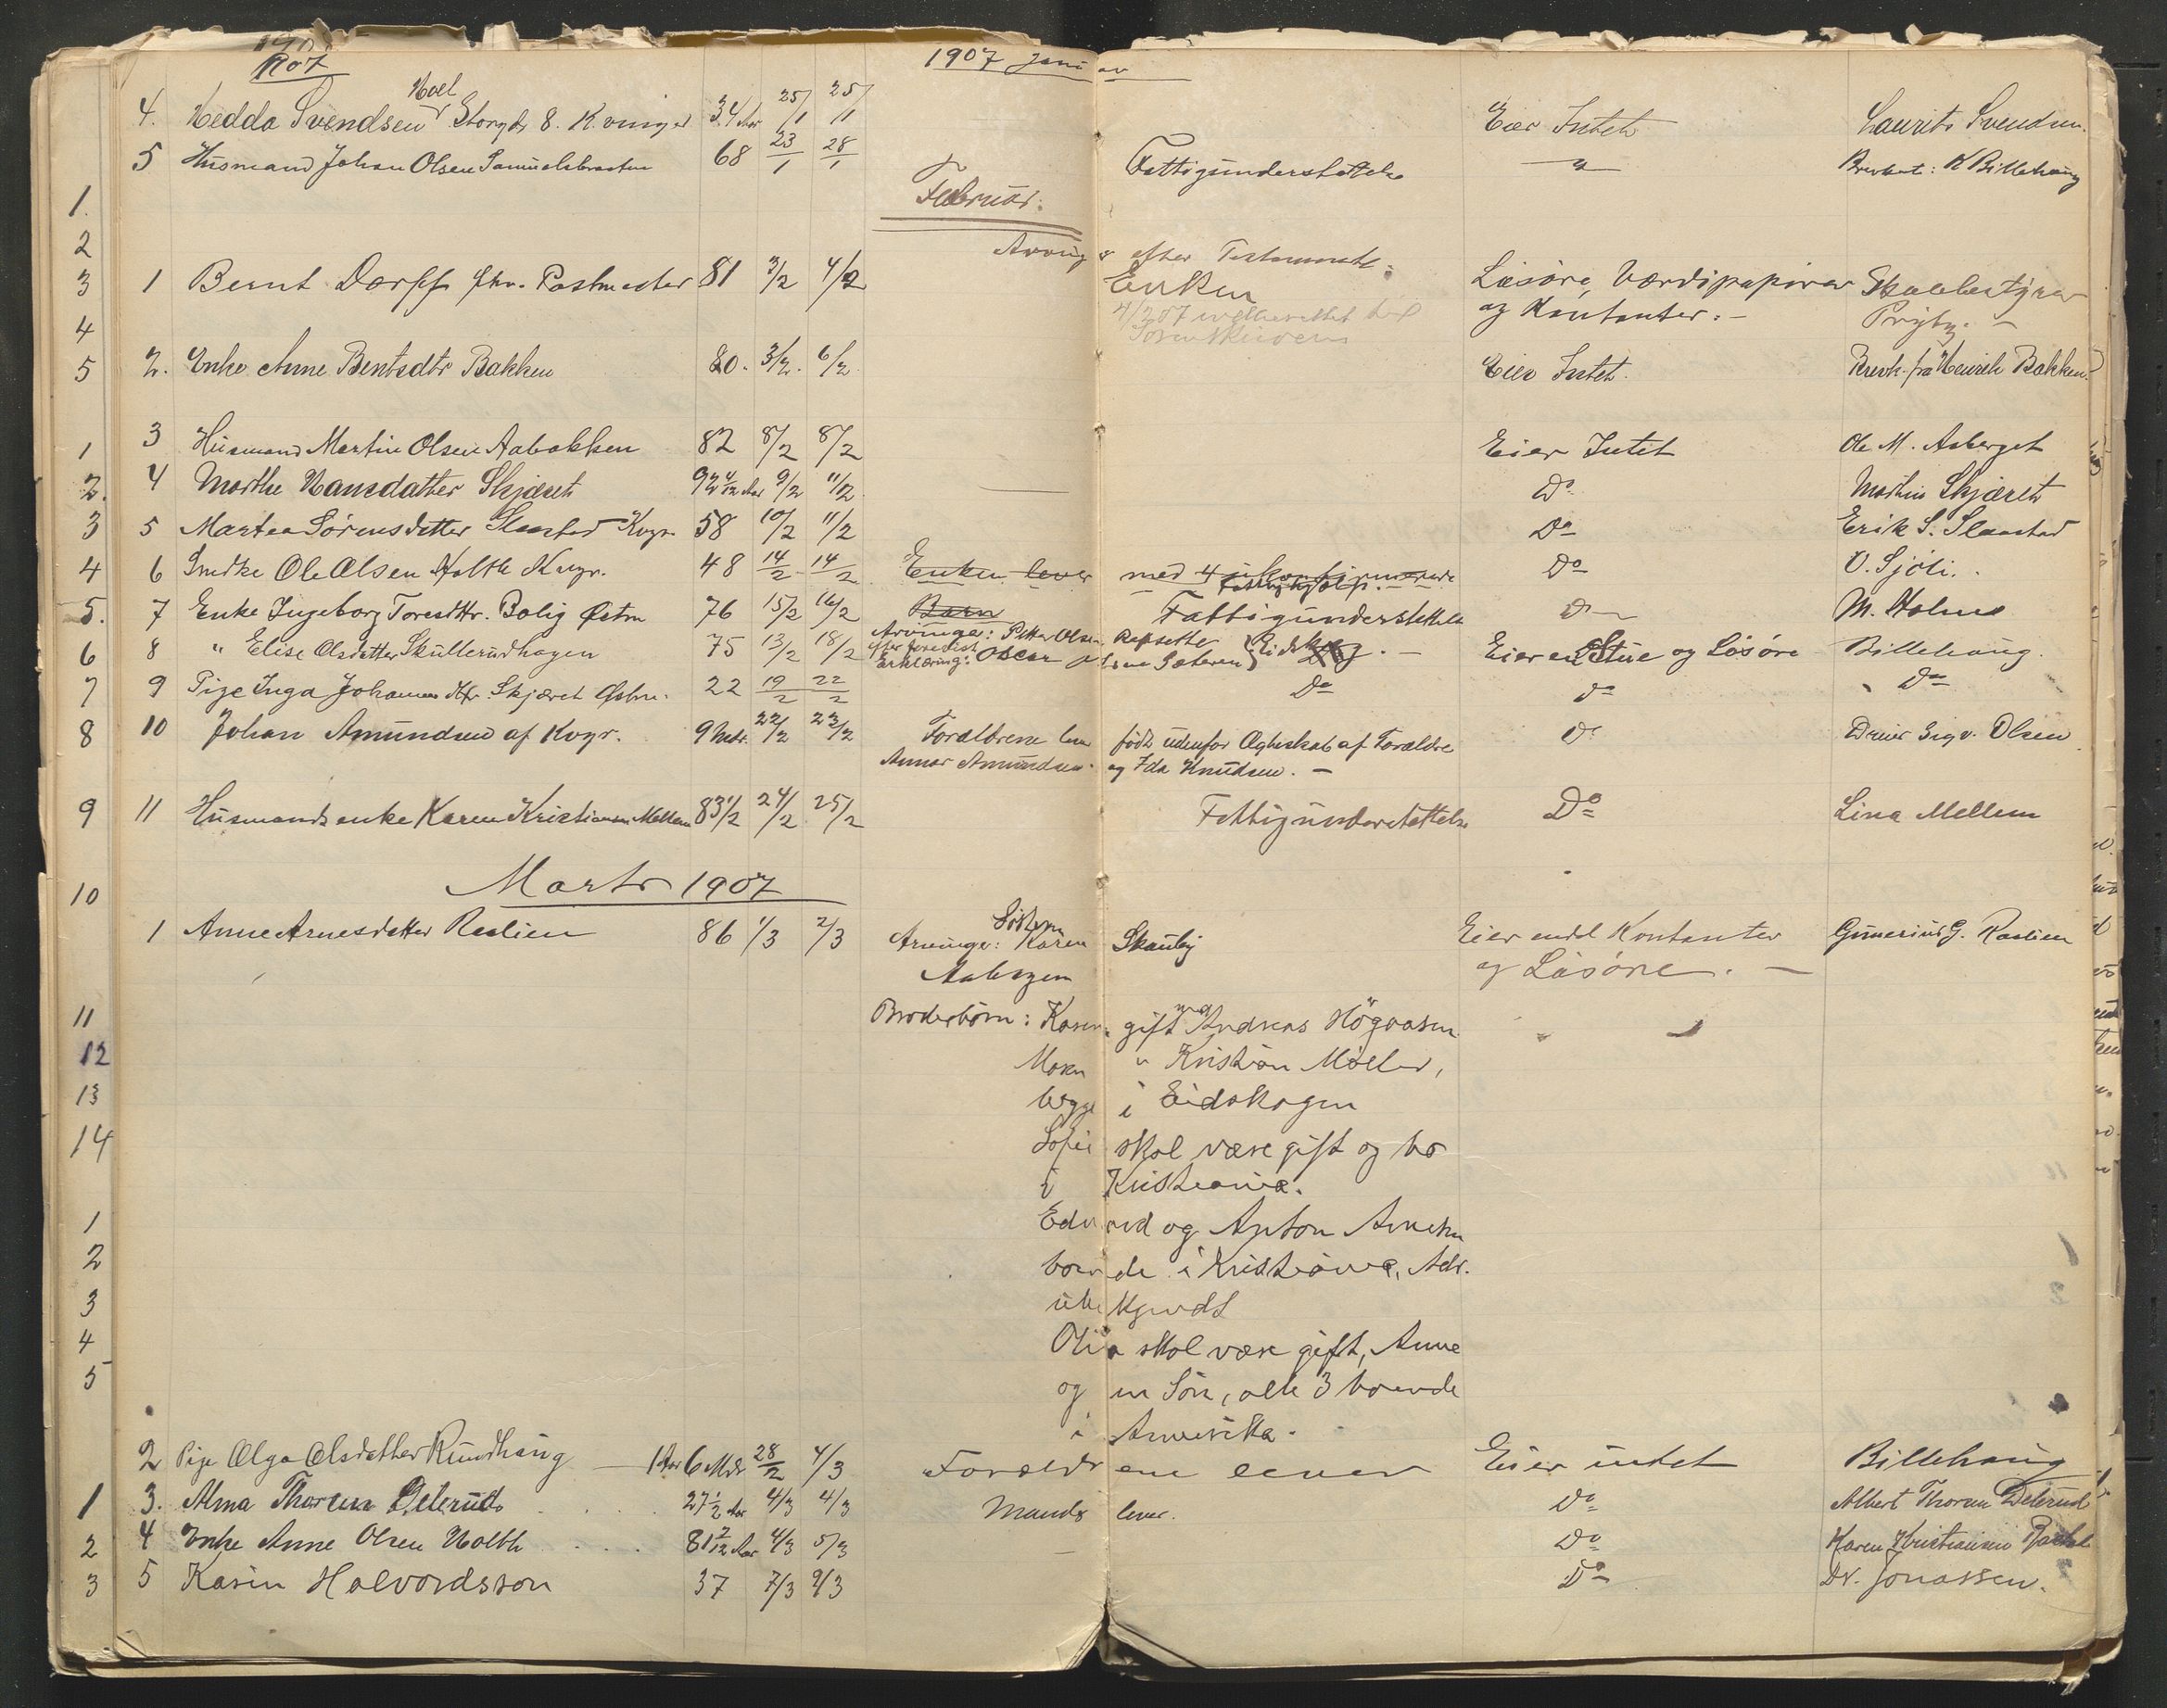 1907
1907 Januar
4. Hedda Svendsen Storgd. 8. K.vinger 34 Aar 25/1 25/1 Eier Intet Laurits Svendsen
5 Husmand Johan Olsen Samuelsbraaten 68 23/1 28/1 Fattigunderstøttelse " Brevkort: K Billehaug
Februar.
Arvinger efter Testamente:
1 Bernt Dorff fhv. Postmester 81 3/2 4/2 Enken Løsøre, Værdipapirer Skolebestyrer
4/2 07 indberettet til og Kontanter. - Pryby. -
Sorenskriveren
2. Enke Anne Bentsdtr Bakken 80. 3/2. 6/2. Eier Intet. Brevk. fra Henrik Bakken.
3 Husmand Martin Olsen Aabakken 82 8/2 8/2 Eier Intet Ole M. Aaberget
4 Marthe Hansdatter Skjæret 92 4/12 Aar 9/2 11/2 — Do Martin Skjæret
5 Martea Sørensdatter Slaastad Kvgr. 58 10/2 11/2 Do Erik S. Slaastad
6 Smdke Ole Olsen Holth Kvgr. 48 14/2 14/2 Enken lever med 4 ukonfirmerede Do O. Sjøli.
Fattighjælp. -
7 Enke Ingeborg Toresdtr. Bolig Østm 76 15/2 16/2 Børn Fattigunderstøttelse Do M. Holme
8 " Elise Olsdatter Skullerudhagen 75 13/2 18/2 Arvinger: Petter Olsen Eidskog. - Eier en Stue og Løsøre Billehaug.
efter foredist
Erklæring: Oscar Sæteren
9 Pige Inga Johannesdtr. Skjæret Østm. 22 19/2 22/2 Do do Do
10 Johan Amundsen af Kvgr. 9 Mdr. 22/2 23/2 Forældrene lever født udenfor Ægteskab af Forældre Do Dreier Sigv. Olsen
Annar Amundsen og Ida Knudsen. -
11 Husmandsenke Karen Kristiansen Mellem 83 1/2 24/2 25/2 Fattigunderstøttelse Do Lina Mellem
Marts 1907
1 Anne Arnesdatter Raslien 86 1/3 2/3 Arvinger: Søsteren Karen Skauby Eier endel Kontanter Gunerius G. Raslien
Aabogen og Løsøre. -
Broderbørn: Karen gift med Andreas Høgaasen
Maren " Kristian Møller,
begge i Eidskogen
Sofie skal være gift og bo
i Kristiania.
Edvard og Anton Arnesen
boende i Kristiania, Adr.
ubekjendt
Olia skal være gift, Anne
og en Søn, alle 3 boende
i Amerika.
2 Pige Olga Olsdatter Rundhaug 1 Aar 6 Mdr 28/2 4/3 Forældrene lever Eier intet Billehaug
3. Alma Thoresen Delerud 27 1/2 Aar 4/3 4/3 Mands lever. Do Albert Thoresen Delerud
4 Enke Anne Olsen Holth 81 7/12 Aar 4/3 5/3 — Do Karen Kristiansen
5 Karin Halvordsson 37 7/3 9/3 Do Dr. Jonassen.
1.
2
3
4
5
1
2.
3
4
5.
6
7
8
9
10
11
12
13
14
1
2
3
4
5
1
2
3